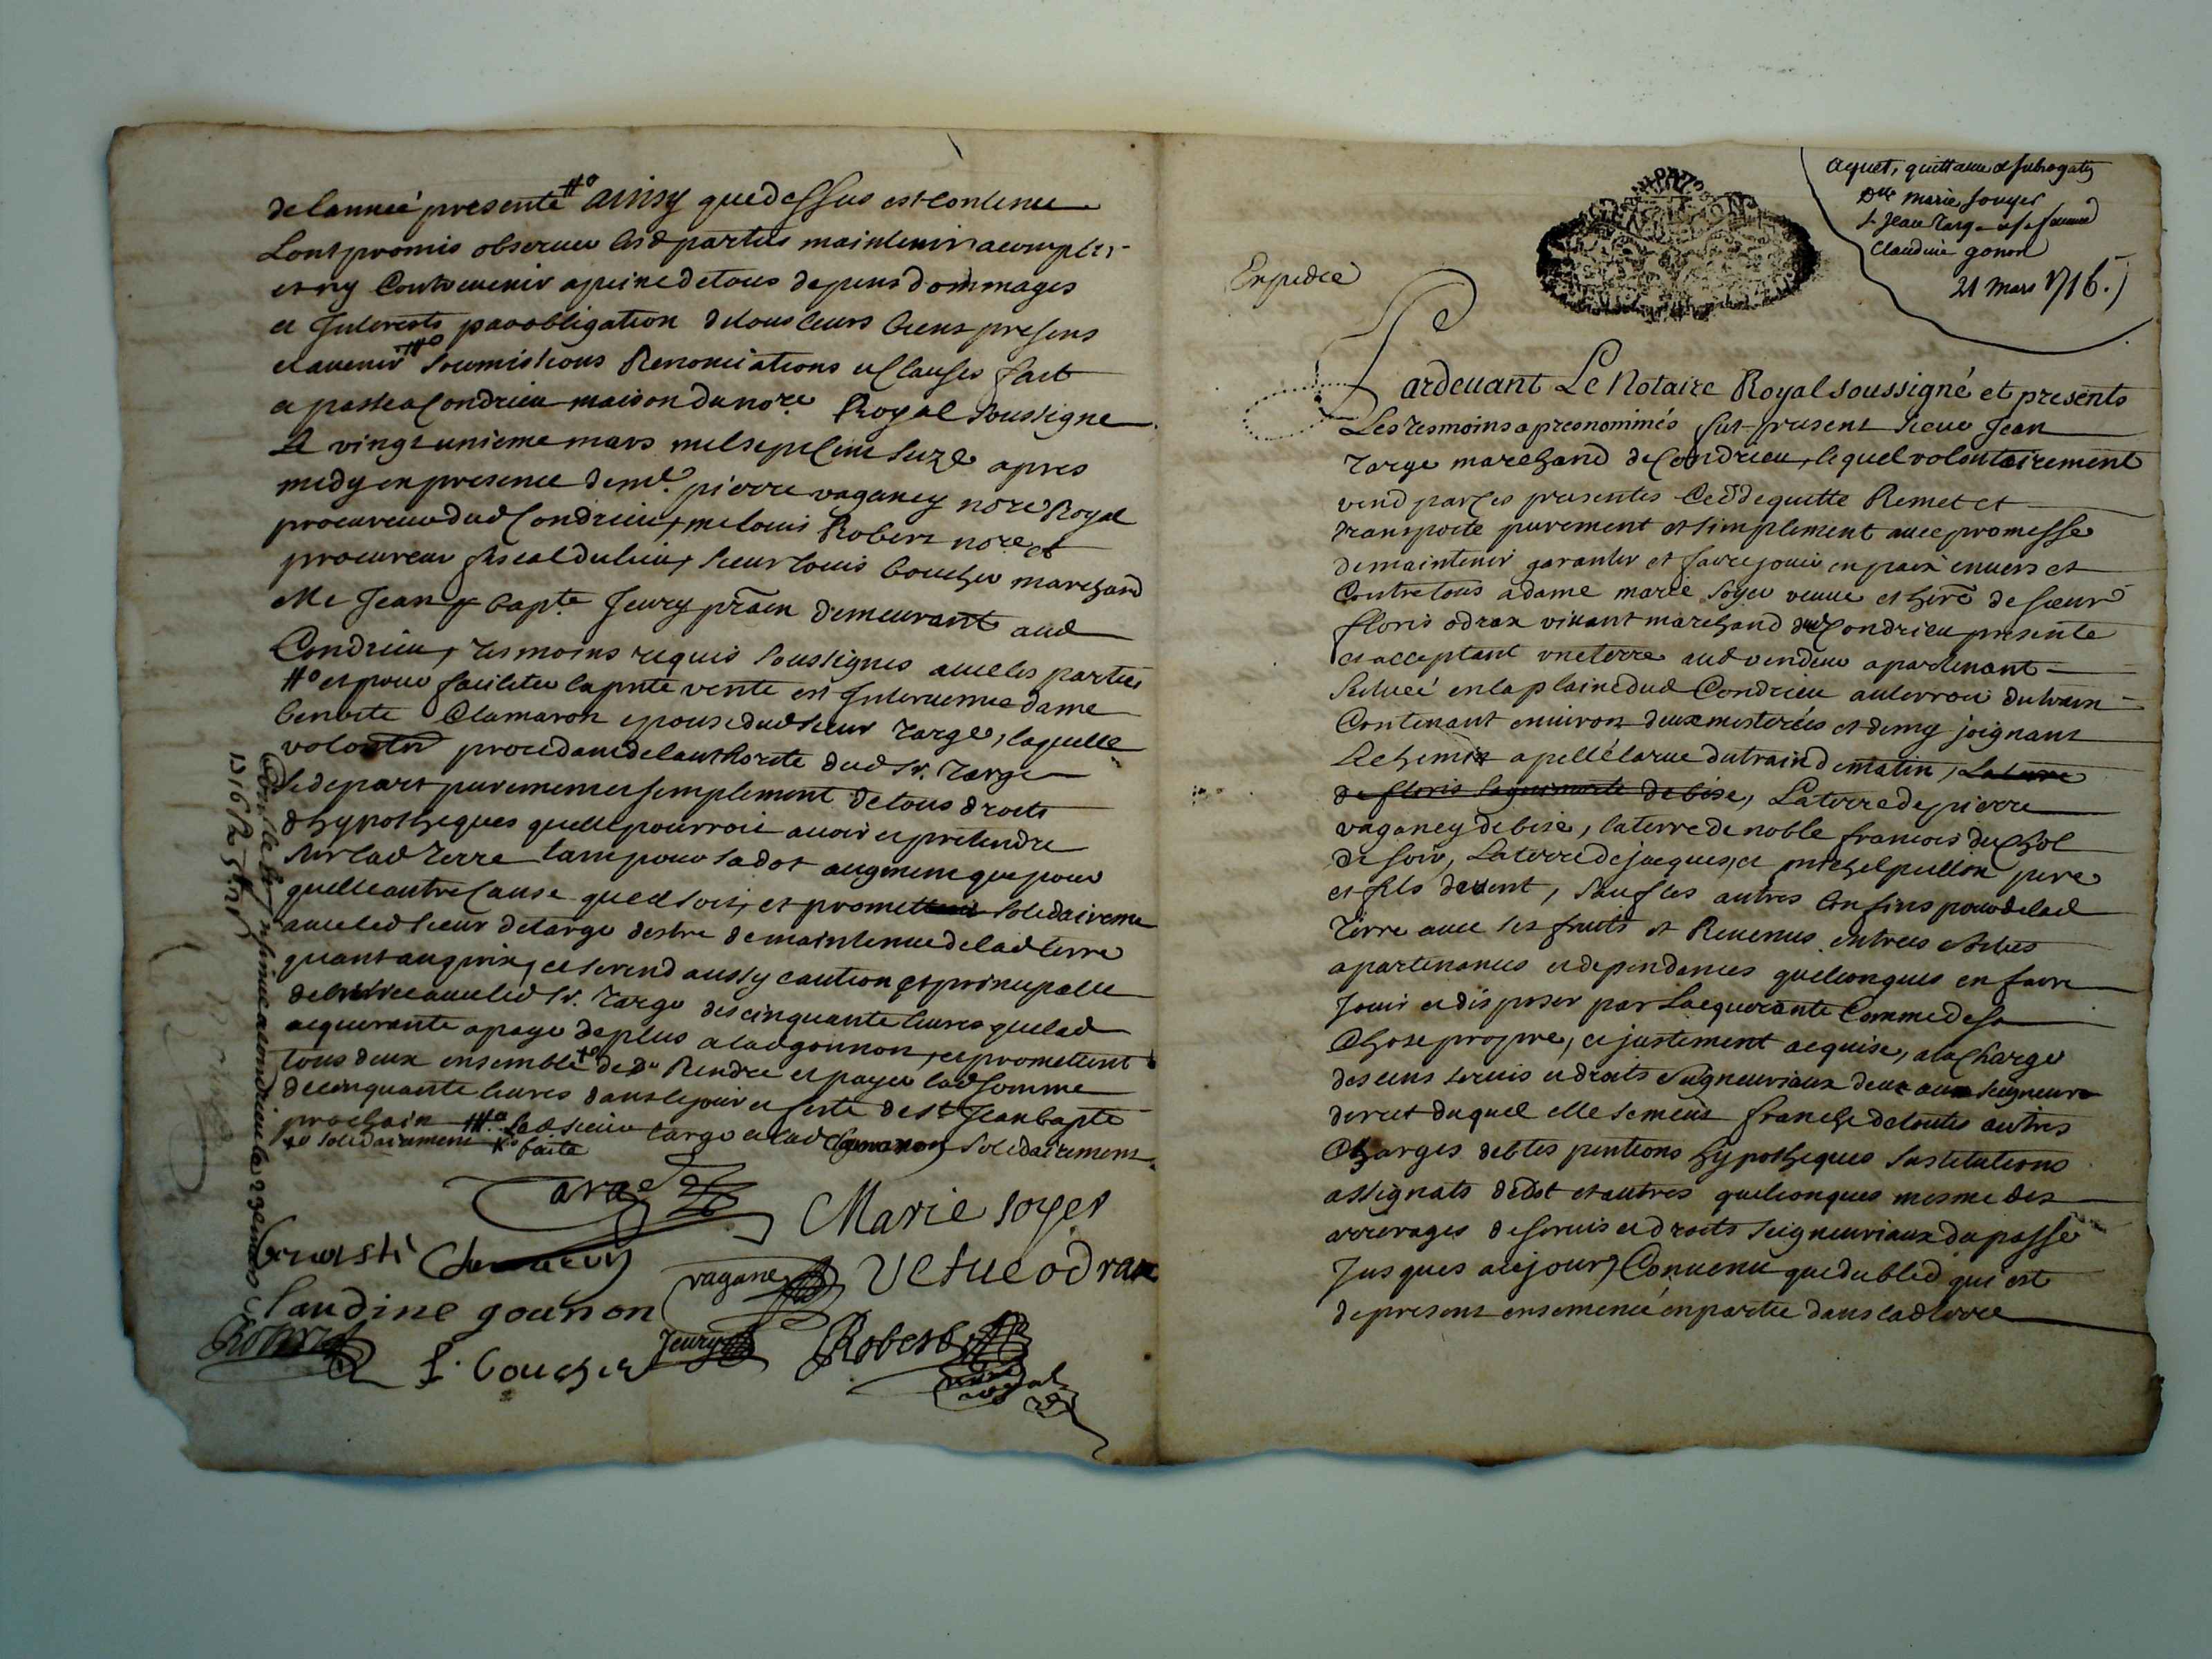 de lannée presente #o ainsy que dessus est contenu
Lont promis observer lesd parties maintenir acomplir
et ny Contrevenir a peine de tous depens dommages
et Interests par obligation de tous leurs biens presens
et avenir Soumissions Renonciations et Clauses fait
et passé a Condrieu maison du nore. Royal Soussigne
Le vingt unieme mars mil sept Cent Seize apres
midy en presence de me. pierre vaganey nore Royal
procureur dud Condrieu, me louis Robert nore. et
procureur fiscal du lieu, sieur louis boucher marchand
et Me Jean bapte. Jeury demeurant aud
Condrieu, tesmoins requis Soussignes avec les parties
#o et pour faciliter la pnte vente est Intervenue dame
benoite Clamaron epouse dud sieur Targe, laquelle
procedant de lauthorité dud Sr. Targe
se depart purement et simplement de tous droits
dhypotheques quelle pourroit avoir et pretendre
sur lad Terre tant pour sa dot augment que pour
quelle autre Cause que ce soit, et promet solidairemt
avec led sieur de targe destre de maintenue de lad terre
quant au prix, et se rend aussy caution et principalle
avec led Sr. Targe des cinquante livres que lad
aquerante a payé de plus a lad gonnon, et promettent
tous deux ensemble de Rendre et payer lad somme
de cinquante livres dans le jour et feste de st Jean bapte
prochain led sieur targe et lad Clamaron Solidairement
solidairement faite
Targe
Marie soyer
benoiste Clamaron
vaganey
vesue odrax
Claudine gounon
Jeury
Robert
L. boucher
nore royal
Expedié
Aquet, quittance et subrogation
Dlle marie souyer
Sr Jean Targe et sa femme
Claudine gonon
21 mars 1716.
Pardevant Le Notaire Royal soussigné et presents
Les tesmoins apres nommés fut present sieur Jean
Targe marchand de Condrieu, lequel volontairement
vend par Ces presentes Cedde quitte Remet et
transporte purement et simplement avec promesse
de maintenir garantir et faire jouir en paix envers et
Contre tous a dame marie Soyer veuve et here de sieur
floris odrax vivant marchand dud Condrieu presente
et acceptant une terre aud vendeur apartenant
Situeé en la plaine dud Condrieu au terroir du train
Contenant environ deux mesterées et demy joignant
Le chemin apellé la rue du train de matin, La terre
de floris de bise, La terre de pierre
vaganey de bise, la terre de noble francois du Chol
de soir, La terre de jacques, et michel pere
et fils de vent, Sauf les autres Confins pour de lad
Terre avec ses fruits et Revenus entrées et
apartenances et dependances quelconques en faire
Jouir et disposer par Laquerante Comme de sa
Chose propre, et justement acquise, a la Charge
des cens servis et droits Seigneuriaux deux aux seigneurs
direct duquel elle se meut franche de toutes autres
Charges debtes pentions hypotheques Sustitutions
assignats de dot et autres quelconques mesme des
arrerages de servis et droits seigneuriaux du passé
Jusques aujourd Convenu que du bled qui est
de present ensemencé en partie dans lad terre